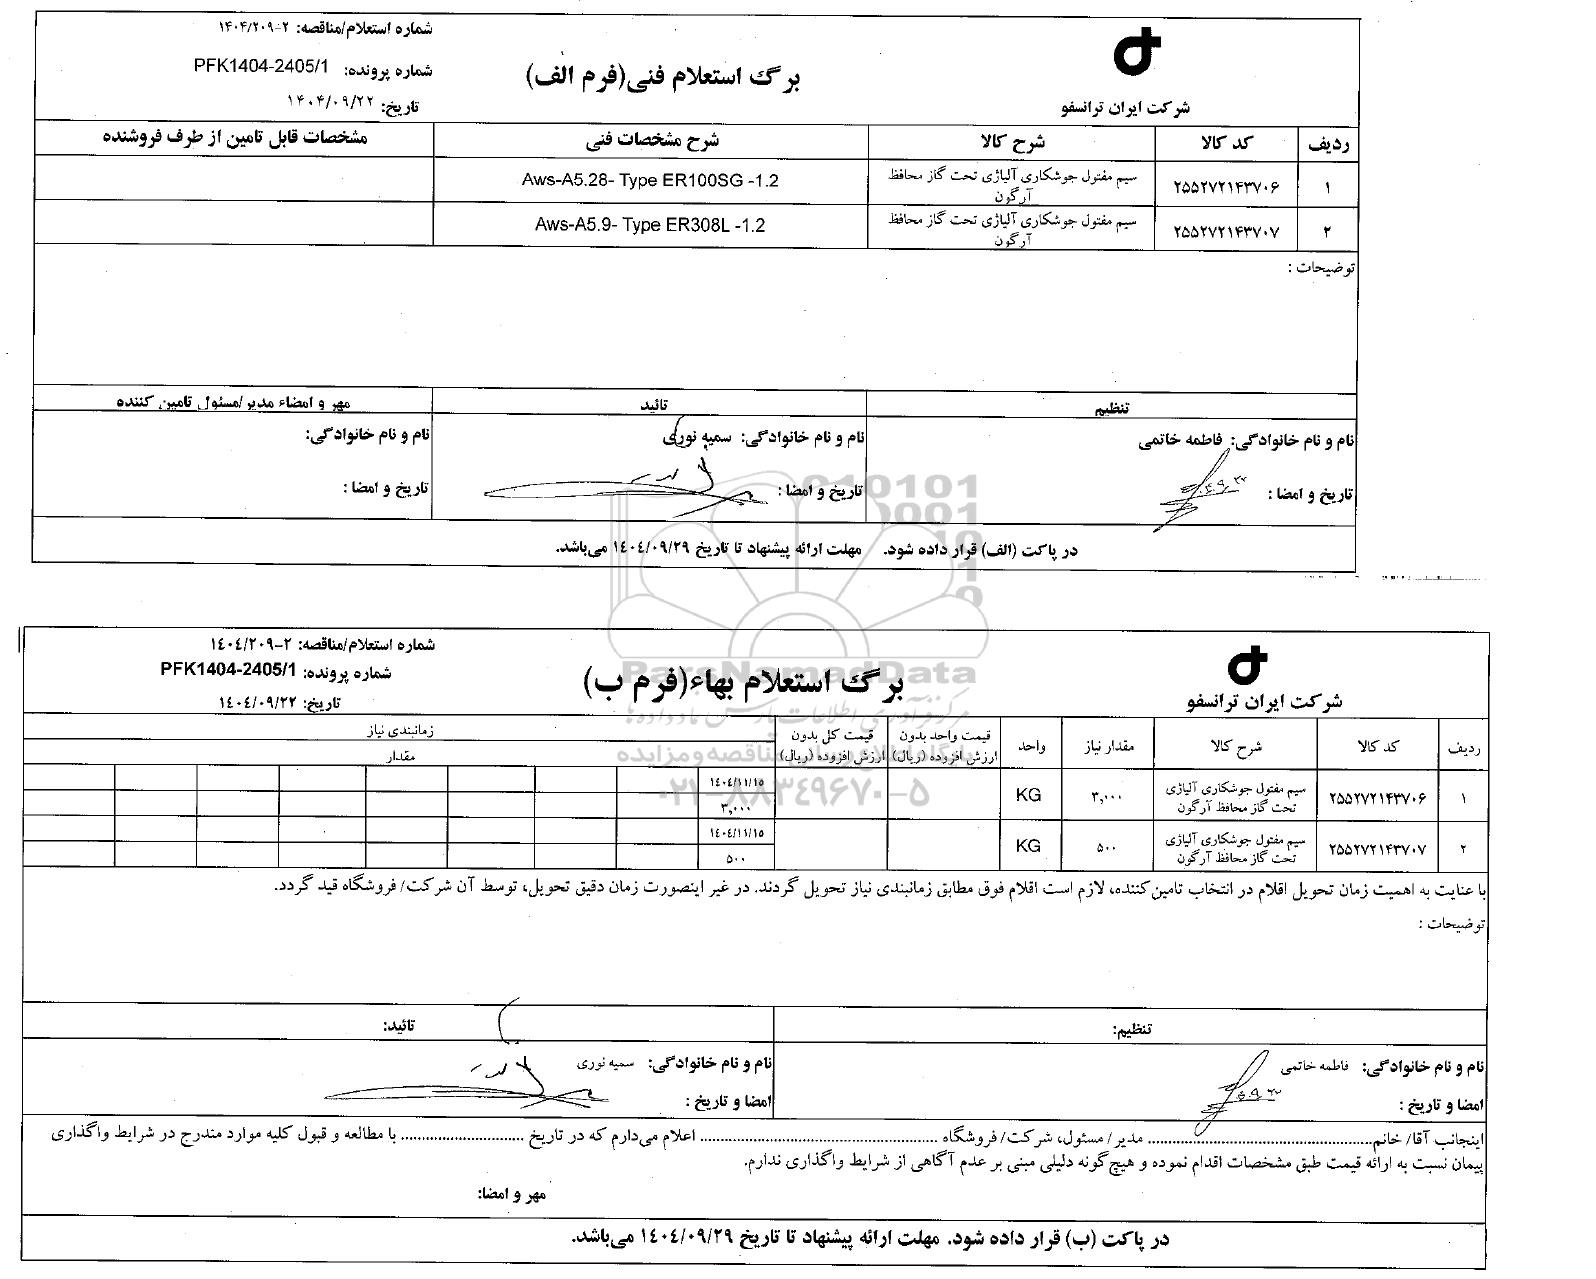 شماره استعلام/مناقصه: ۲-۱۴۰۴/۲۰۹
برگ استعلام فنی(فرم الف)
شماره پرونده: PFK1404-2405/1
تاریخ: ۱۴۰۴/۰۹/۲۲
شرکت ایران ترانسفو
ردیف
کد کالا
شرح کالا
شرح مشخصات فنی
مشخصات قابل تامین از طرف فروشنده
۱
۲۵۵۲۷۲۱۴۳۷۰۶
سیم مفتول جوشکاری آلیاژی تحت گاز محافظ
آرگون
Aws-A5.28- Type ER100SG -1.2
۲
۲۵۵۲۷۲۱۴۳۷۰۷
سیم مفتول جوشکاری آلیاژی تحت گاز محافظ
آرگون
Aws-A5.9- Type ER308L -1.2
توضیحات :
تنظیم
تائید
مهر و امضاء مدیر/مسئول تامین کننده
نام و نام خانوادگی: فاطمه خاتمی
نام و نام خانوادگی: سمیه نوری
نام و نام خانوادگی:
تاریخ و امضا :
تاریخ و امضا :
تاریخ و امضا :
در پاکت (الف) قرار داده شود. مهلت ارائه پیشنهاد تا تاریخ ۱۴۰۴/۰۹/۲۹ می‌باشد.
شماره استعلام/مناقصه: ۲-۱۴۰۴/۲۰۹
شماره پرونده: PFK1404-2405/1
برگ استعلام بهاء(فرم ب)
تاریخ: ۱۴۰۴/۰۹/۲۲
شرکت ایران ترانسفو
ParsNamadData
مرکز فرآوری اطلاعات پارس نماد داده‌ها
۰۲۱-۸۸۳۴۹۶۷۰-۵
ردیف
کد کالا
شرح کالا
مقدار نیاز
واحد
قیمت واحد بدون
ارزش افزوده (ریال)
قیمت کل بدون
ارزش افزوده (ریال)
زمانبندی نیاز
مقدار
۱
۲۵۵۲۷۲۱۴۳۷۰۶
سیم مفتول جوشکاری آلیاژی
تحت گاز محافظ آرگون
۳,۰۰۰
KG
۱۴۰۴/۱۱/۱۵
۳,۰۰۰
۲
۲۵۵۲۷۲۱۴۳۷۰۷
سیم مفتول جوشکاری آلیاژی
تحت گاز محافظ آرگون
۵۰۰
KG
۱۴۰۴/۱۱/۱۵
۵۰۰
با عنایت به اهمیت زمان تحویل اقلام در انتخاب تامین‌کننده، لازم است اقلام فوق مطابق زمانبندی نیاز تحویل گردند. در غیر اینصورت زمان دقیق تحویل، توسط آن شرکت/ فروشگاه قید گردد.
توضیحات :
تنظیم:
تائید:
نام و نام خانوادگی: فاطمه خاتمی
نام و نام خانوادگی: سمیه نوری
امضا و تاریخ :
امضا و تاریخ :
اینجانب آقا/ خانم........................................ مدیر/ مسئول، شرکت/ فروشگاه ........................................ اعلام می‌دارم که در تاریخ .......................... با مطالعه و قبول کلیه موارد مندرج در شرایط واگذاری
پیمان نسبت به ارائه قیمت طبق مشخصات اقدام نموده و هیچ‌گونه دلیلی مبنی بر عدم آگاهی از شرایط واگذاری ندارم.
مهر و امضا:
در پاکت (ب) قرار داده شود. مهلت ارائه پیشنهاد تا تاریخ ۱۴۰۴/۰۹/۲۹ می‌باشد.